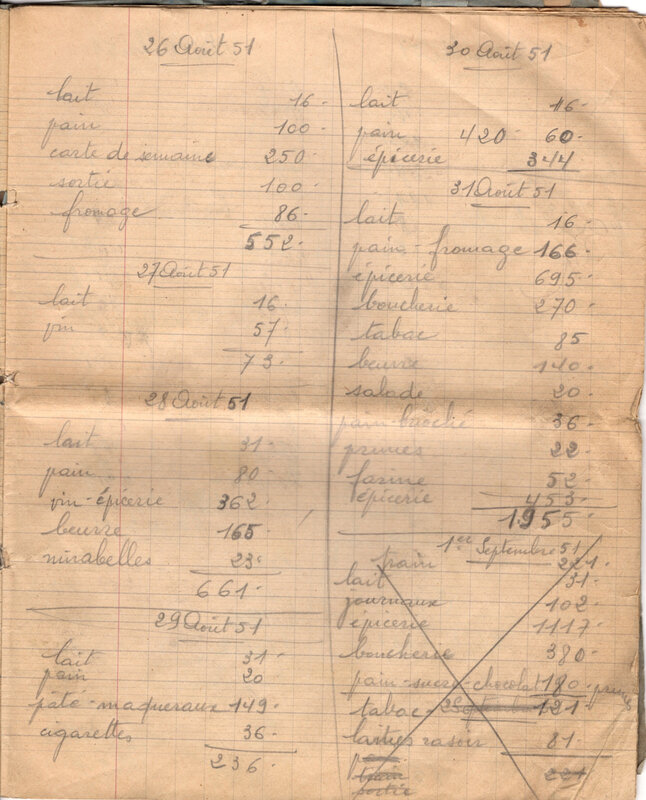 26 Août 51
lait 16.
pain 100.
carte de semaine 250.
sortie 100.
fromage 86.
552.
27 Août 51
lait 16.
vin 57.
73.
28 Août 51
lait 31.
pain 80.
vin-épicerie 362.
beurre 165
mirabelles 23.
661.
29 Août 51
lait 31.
pain 20
pâté-maqueraux 149.
cigarettes 36.
236.
30 Août 51
lait 16.
pain 420 60.
épicerie 344
31 Août 51
lait 16.
pain-fromage 166.
épicerie 695.
boucherie 270.
tabac 85
beurre 140.
salade 20.
pain brioché 36
prunes 22.
farine 52.
épicerie 453.
1955.
1er Septembre 51
train 221.
lait 31.
journaux 102.
épicerie 1117.
boucherie 380.
pain-sucre-chocolat 180. prunes
tabac 121.
rasoir 81.
train 221
sortie